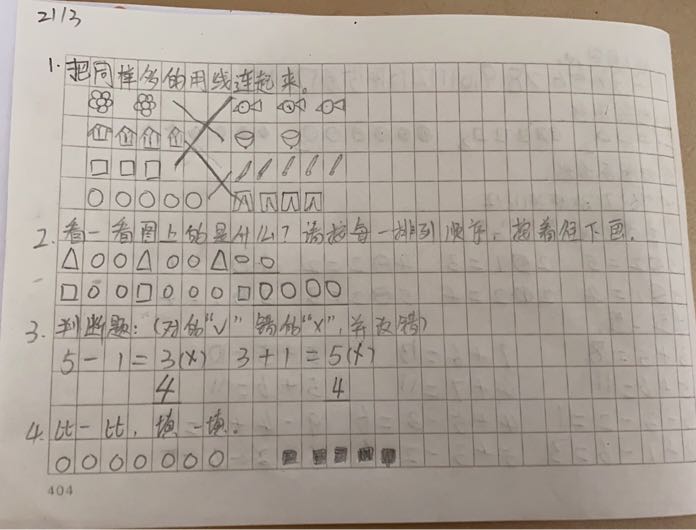 2113
1. 把同样多的用线连起来。
2. 看一看图上的是什么?请按每一排列顺序,接着往下画。
3. 判断题:(对的“√”错的“×”,并改错)
5-1=3(×) 3+1=5(×)
4 4
4. 比一比,填一填。
404